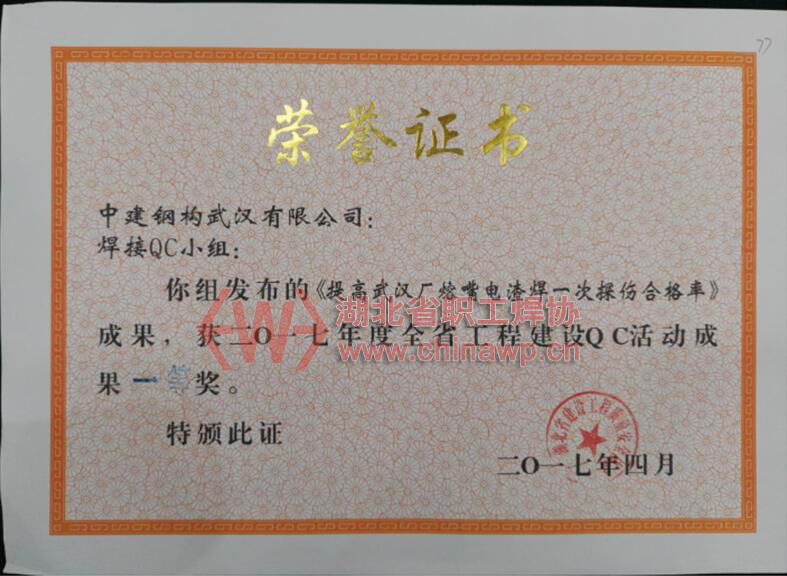 77
荣誉证书
中建钢构武汉有限公司:
焊接QC小组:
你组发布的《提高武汉厂熔嘴电渣焊一次探伤合格率》
成果，获二〇一七年度全省工程建设QC活动成
果一等奖。
特颁此证
二〇一七年四月
湖北省职工焊协
www.chinawp.cn
湖北省建设工程质量安全